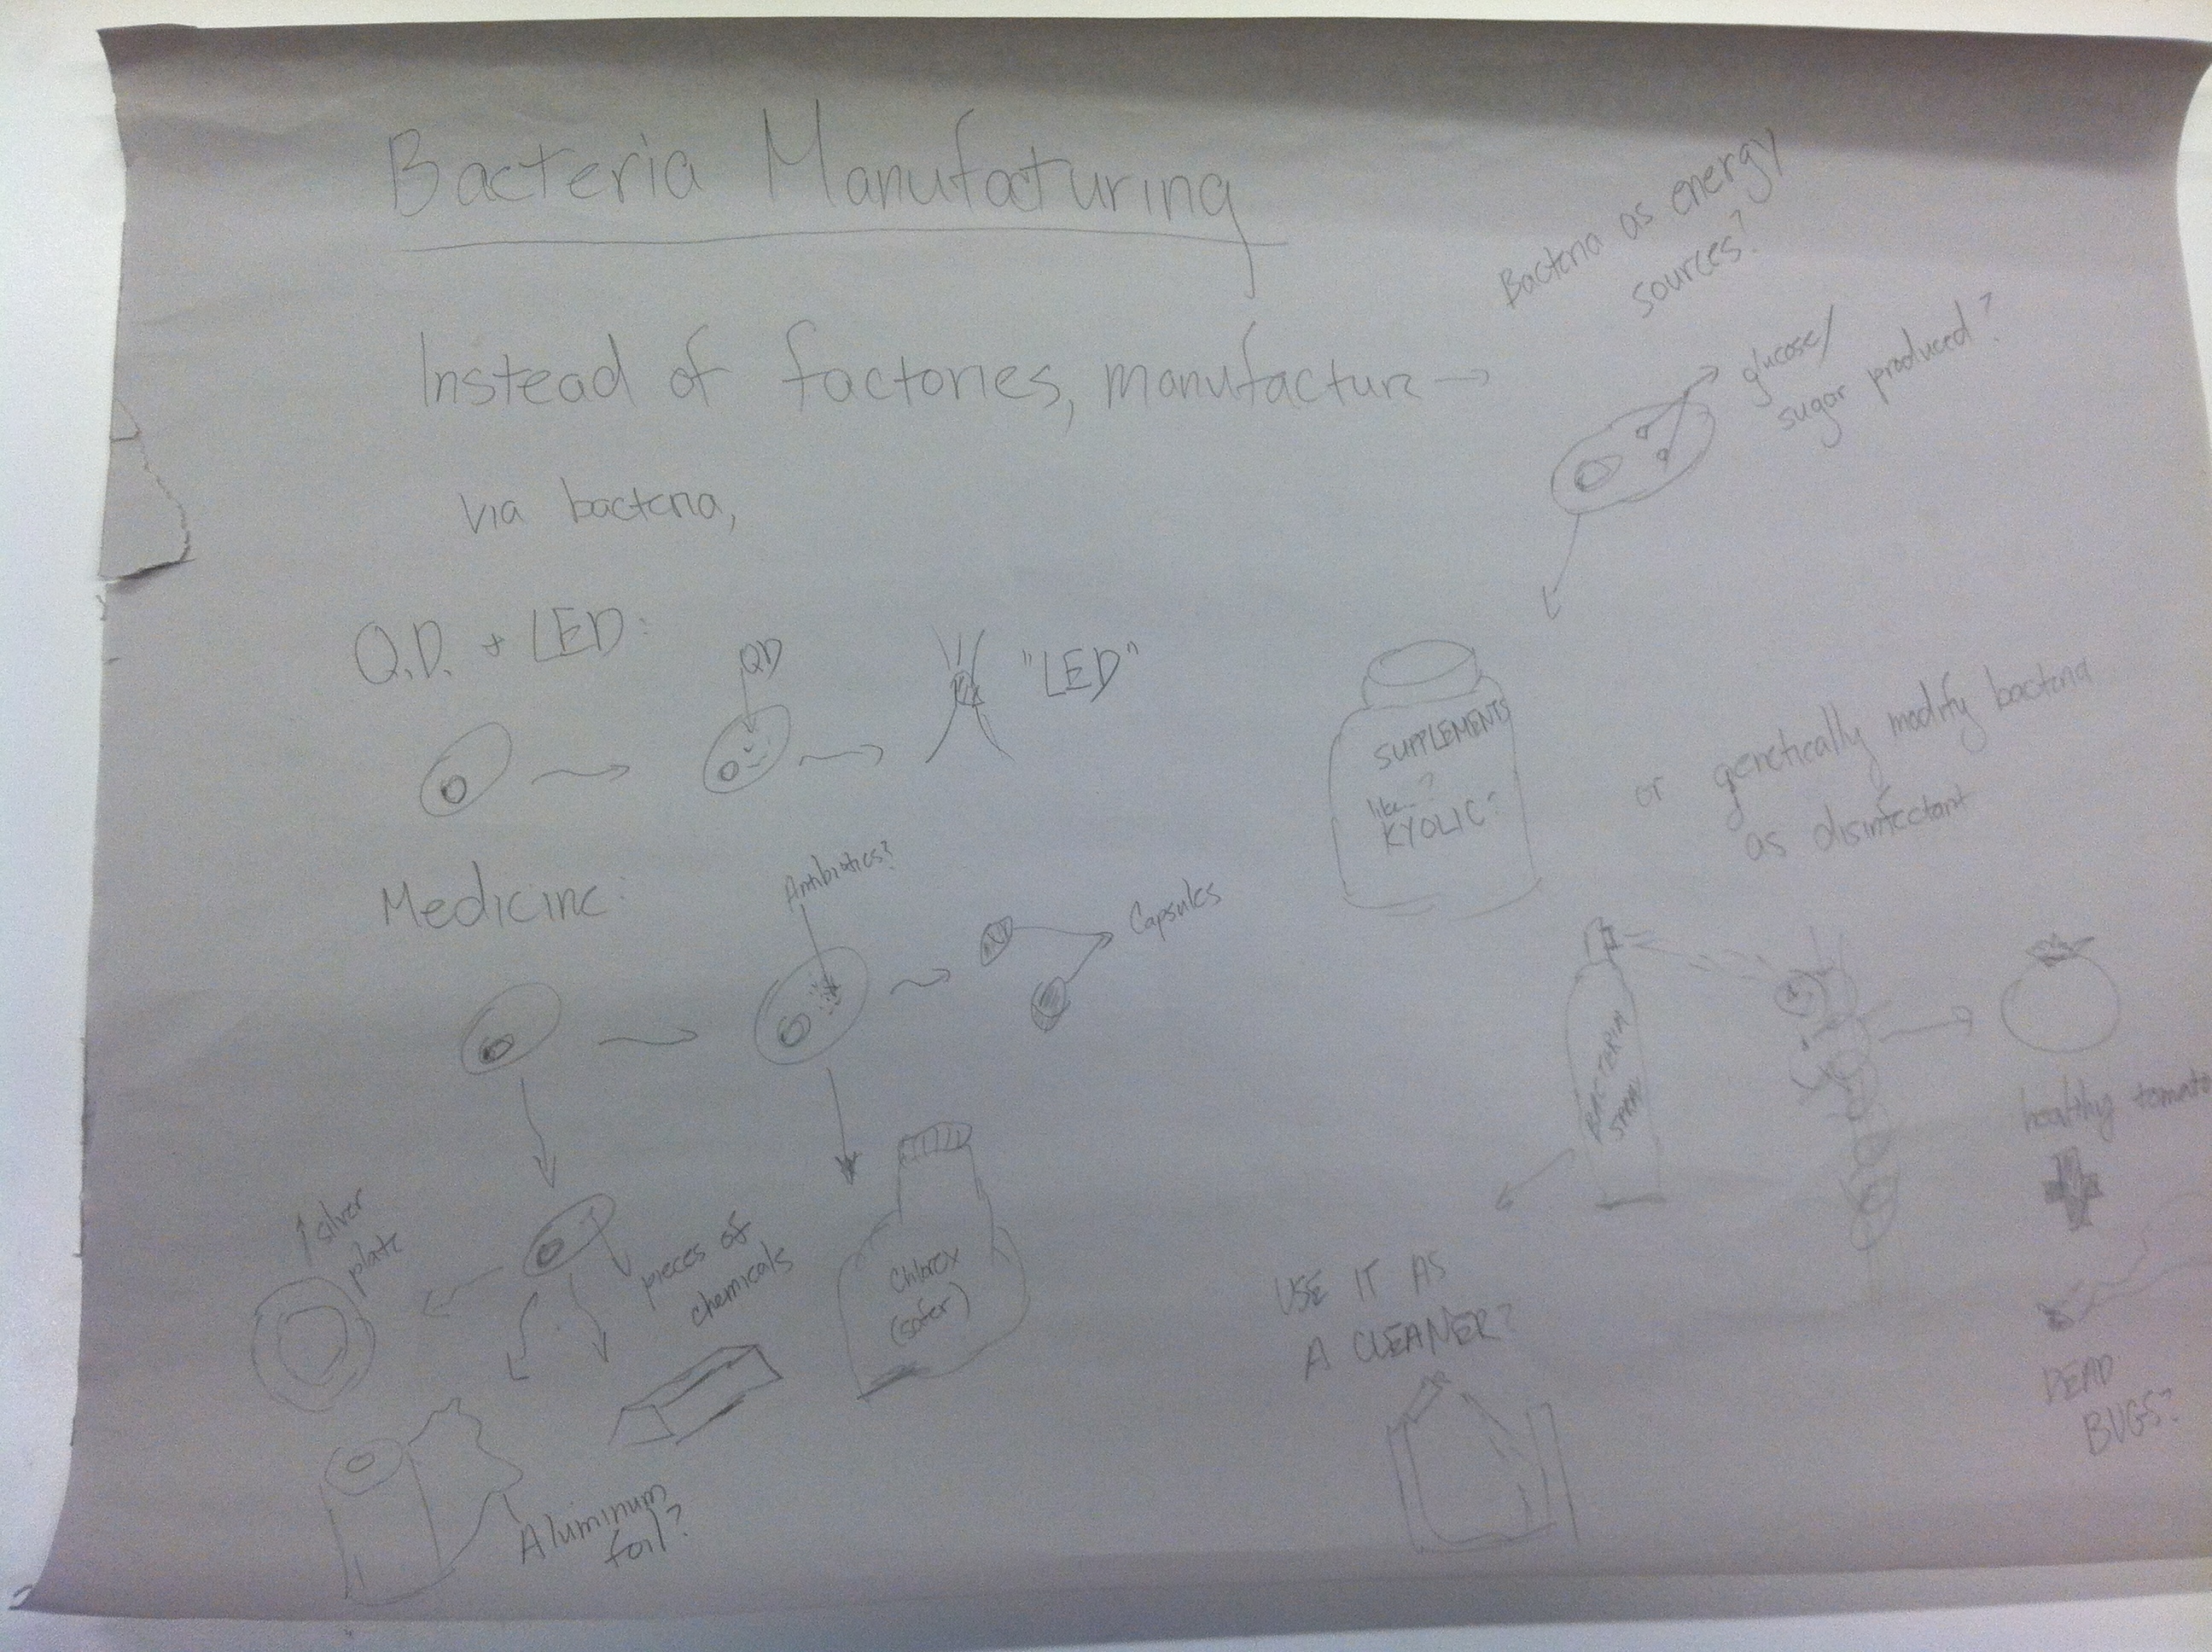 Bacteria Manufacturing
Instead of factories, manufacture
via bacteria,
Bacteria as energy
sources?
glucose/
sugar produced?
Q.D. + LED:
QD
"LED"
SUPPLEMENTS
like...?
KYOLIC?
or genetically modify bacteria
as disinfectant
Medicine:
Antibiotics?
Capsules
BACTERIA
SPRAY
healthy tomato
DEAD
BUGS?
USE IT AS
A CLEANER?
silver
plate
pieces of
chemicals
Chlorox
(safer)
Aluminum
foil?